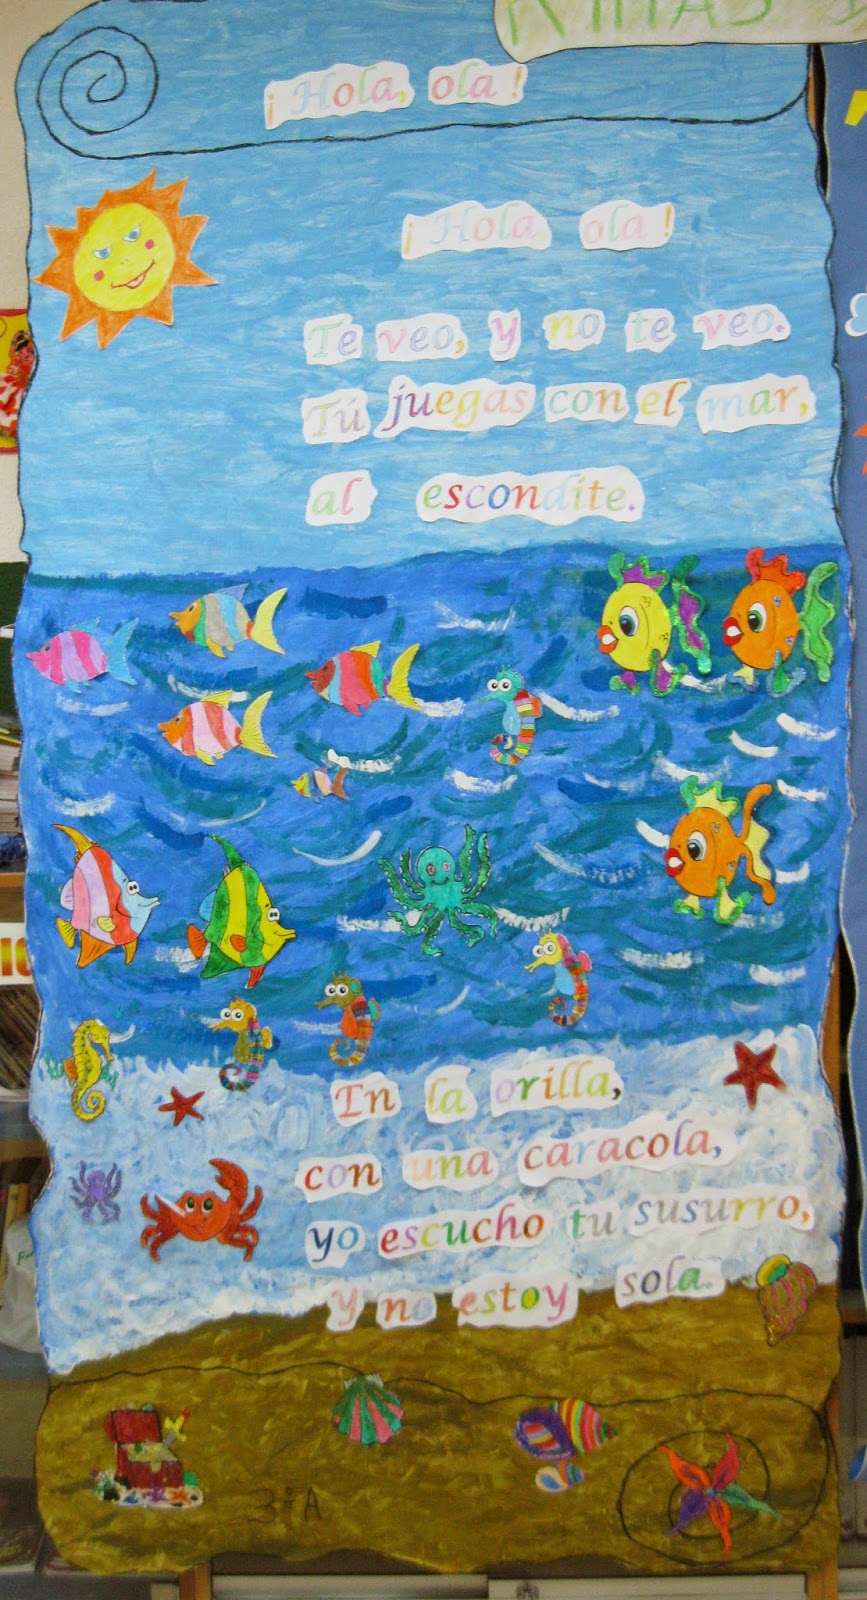 ¡Hola, ola!
¡Hola, ola!
Te veo, y no te veo.
Tú juegas con el mar,
al escondite.
En la orilla,
con una caracola,
yo escucho tu susurro,
y no estoy sola.
3ºA